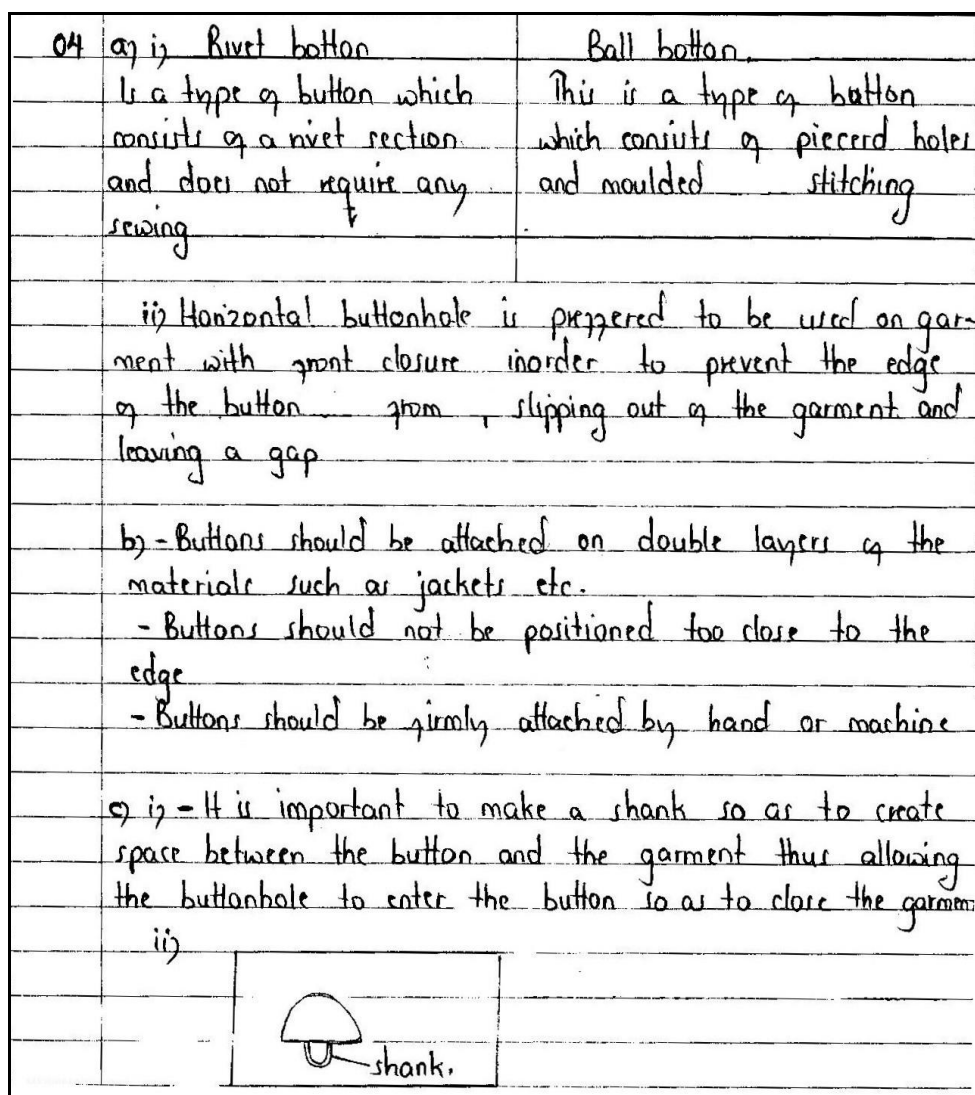 04 a) i) Rivet botton | Ball botton.
Is a type of button which | This is a type of botton
consists of a rivet section. | which consists of piecerd holes
and does not require any | and moulded stitching
sewing
ii) Horizontal buttonhole is preffered to be used on gar-
ment with front closure inorder to prevent the edge
of the button from, slipping out of the garment and
leaving a gap
b) - Buttons should be attached on double layers of the
materials such as jackets etc.
- Buttons should not be positioned too close to the
edge
- Buttons should be firmly attached by hand or machine
c) i) - It is important to make a shank so as to create
space between the button and the garment thus allowing
the buttonhole to enter the button so as to close the garmen
ii)
shank.